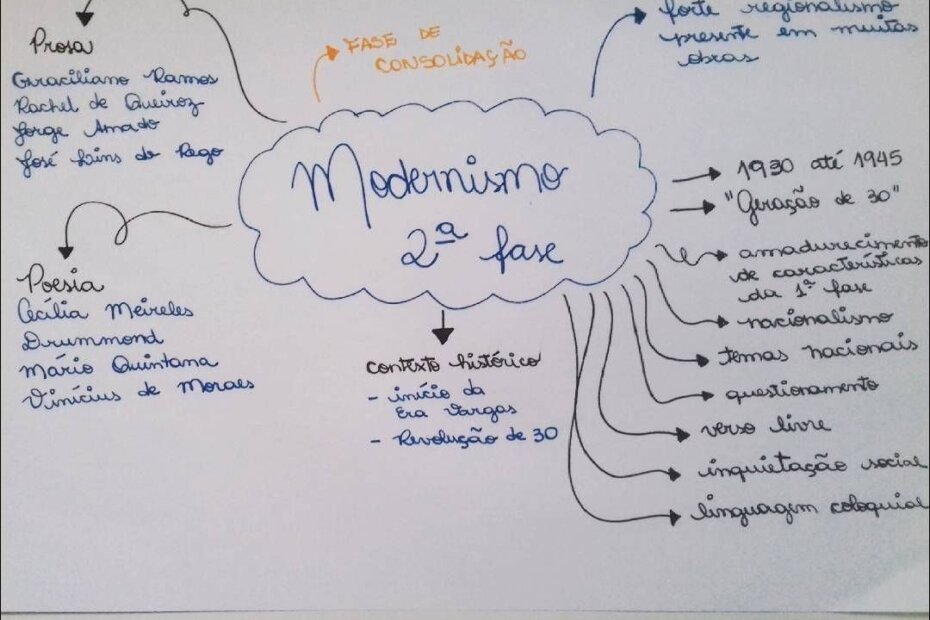 Prosa
Graciliano Ramos
Rachel de Queiroz
Jorge Amado
José Lins do Rego
FASE DE
CONSOLIDAÇÃO
forte regionalismo
presente em muitas
obras
Modernismo
2ª fase
1930 até 1945
"Geração de 30"
amadurecimento
de características
da 1ª fase
nacionalismo
temas nacionais
questionamento
verso livre
inquietação social
linguagem coloquial
Poesia
Cecília Meireles
Drummond
Mário Quintana
Vinícius de Moraes
contexto histórico
- início da
Era Vargas
- Revolução de 30